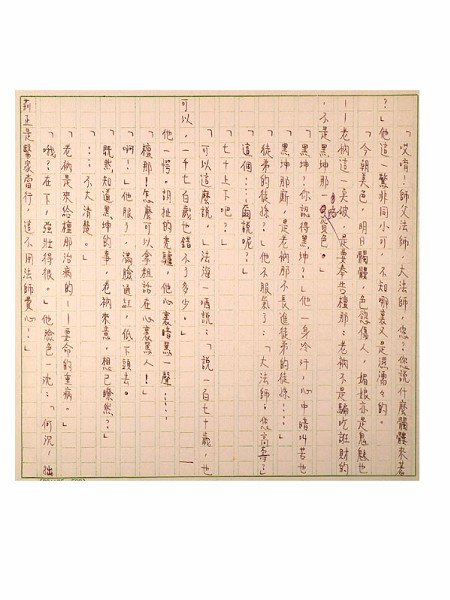 「哎唷！師父法師，大法師，您，您說什麼髑髏來著
？」他這一驚非同小可，不知哪裏又是濕濡々的。
「今朝美色，明日髑髏，色慾傷人，媚娘亦是鬼魅也
——老衲這一哭破，是要奉告檀那：老衲不是騙吃誑財的
，不是黑坤那貨色。」
「黑坤，你認得黑坤？」他一身冷汗，心中暗叫苦也
「黑坤那廝，是老衲那不長進徒弟的徒孫……」
「徒弟的徒孫？」他不服氣了：「大法師，您高壽？」
「這個……個說呢？」
「七十上下吧？」
「可以這麼說。」法海一哂說：「說一百七十歲，也
可以，一千七百歲也錯不了多少。」——
他一愕。胡扯的老驢，他心裏暗罵一聲……
「檀那！怎麼可以拿粗話在心裏罵人！」
「啊！」他服了，滿臉通紅，低下頭去。
「既然知道黑坤的事，老衲來意，想已瞭然？」
「……不大清楚。」
「老衲是來給檀那治病的——要命的重病。」
「哦？在下，強壯得很。」他臉色一沉：「何況，拙
荊正是醫家當行，這不用法師費心……」